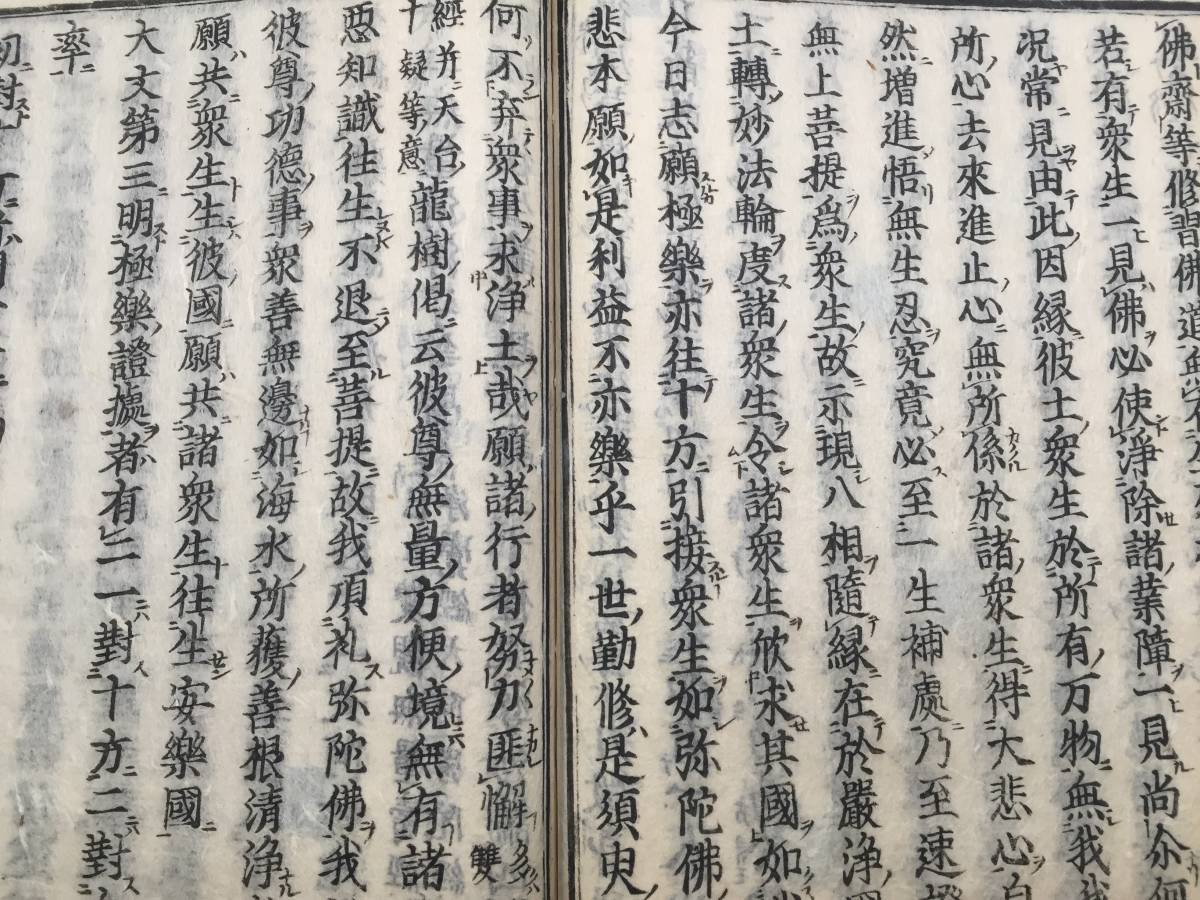 佛齋等修皆佛道無
若有衆生一見佛必使淨除諸業障一見尚尒何
况常見由此因縁彼土衆生於所有万物無我我
所心去來進止心無所係於諸衆生得大悲心自
然増進悟無生忍究竟必至一生補處乃至速
無上菩提爲衆生故示現八相隨縁在於嚴浄
土轉妙法輪度諸衆生令諸衆生欣求其國如
今日志願極樂亦往十方引接衆生如弥陀佛
悲本願如是利益不亦樂乎一世勤修是須臾
何不弃衆事求浄土哉願諸行者努力匪懈多
雙
經并天台
十疑等意
龍樹偈云彼尊無量方便境無有諸
惡知識往生不退至菩提故我頂礼弥陀佛我
彼尊功德事衆善無邊如海水所獲善根清浄
願共衆生生彼國願共諸衆生往生安樂國
大文第三明極樂證據者有二一對十方二對
率
初對